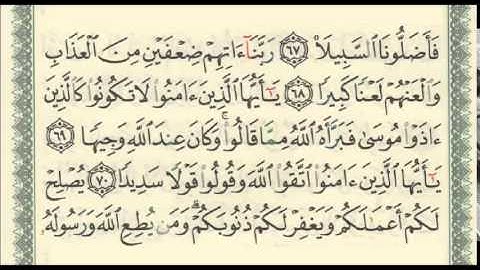 فَأَضَلُّونَا ٱلسَّبِيلَا۠ ٦٧ رَبَّنَآ ءَاتِهِمْ ضِعْفَيْنِ مِنَ ٱلْعَذَابِ
وَٱلْعَنْهُمْ لَعْنًا كَبِيرًا ٦٨ يَٰٓأَيُّهَا ٱلَّذِينَ ءَامَنُوا۟ لَا تَكُونُوا۟ كَٱلَّذِينَ
ءَاذَوْا۟ مُوسَىٰ فَبَرَّأَهُ ٱللَّهُ مِمَّا قَالُوا۟ۚ وَكَانَ عِندَ ٱللَّهِ وَجِيهًا ٦٩
يَٰٓأَيُّهَا ٱلَّذِينَ ءَامَنُوا۟ ٱتَّقُوا۟ ٱللَّهَ وَقُولُوا۟ قَوْلًا سَدِيدًا ٧٠ يُصْلِحْ
لَكُمْ أَعْمَٰلَكُمْ وَيَغْفِرْ لَكُمْ ذُنُوبَكُمْۗ وَمَن يُطِعِ ٱللَّهَ وَرَسُولَهُۥ